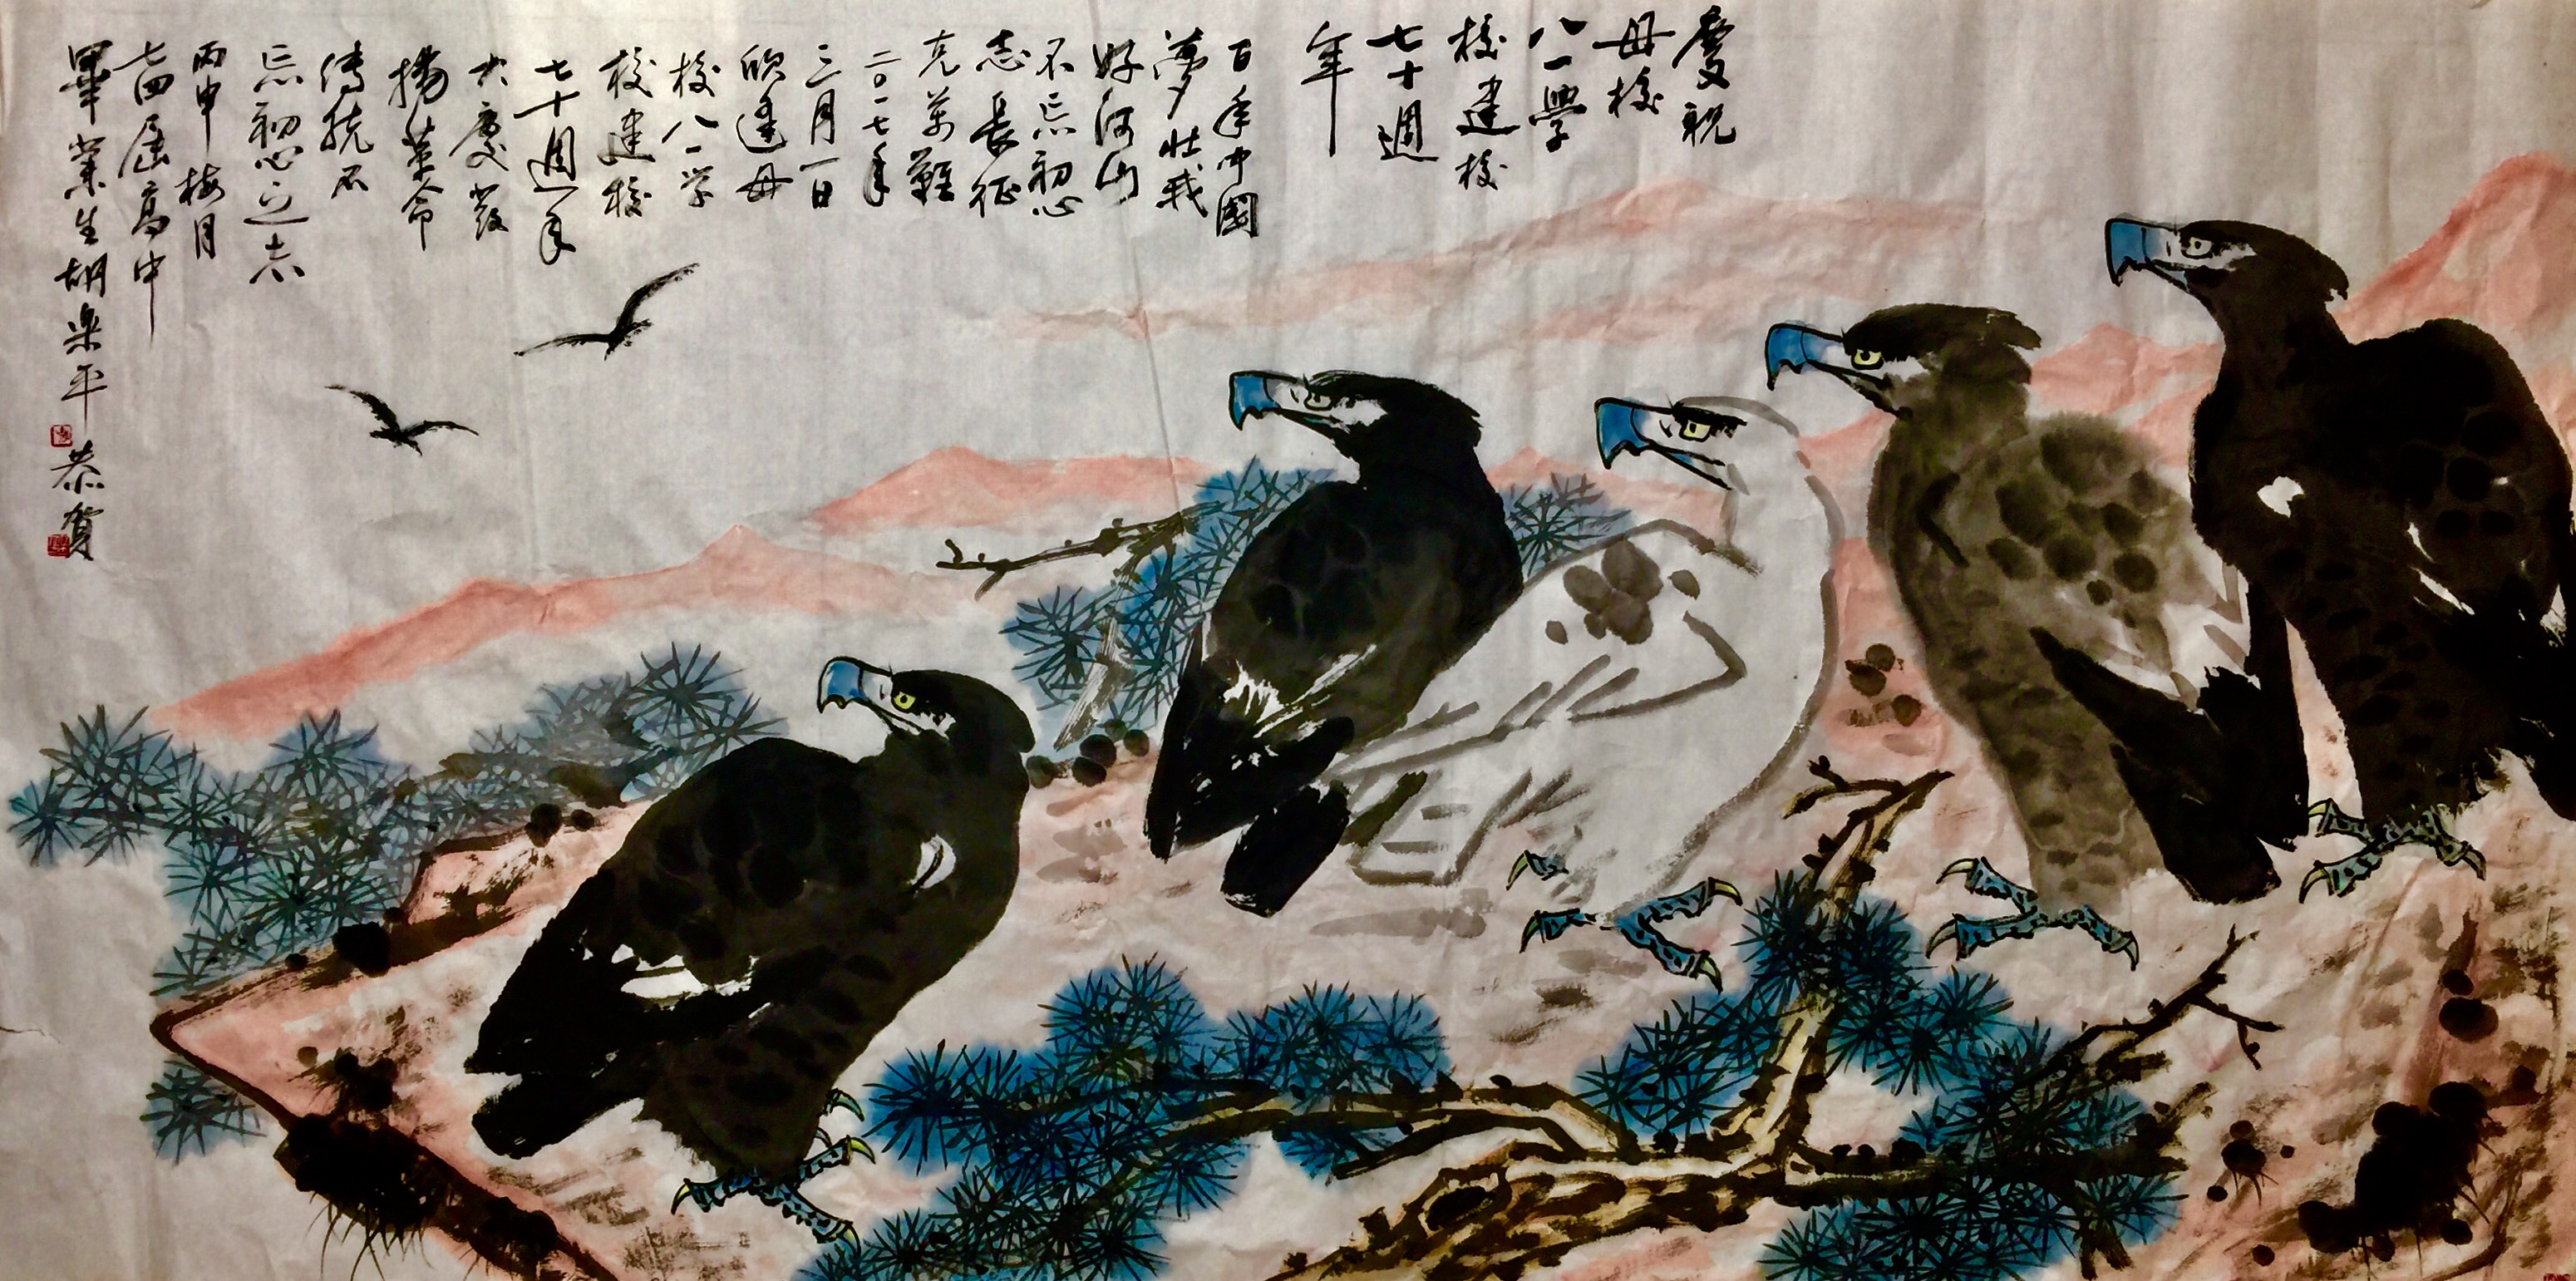 慶祝
母校
八一學
校建校
七十週
年
百年中國
夢壯我
好河山
不忘初心
志長征
克萬難
二〇一七年
三月一日
欣逢母
校八一学
校建校
七十週年
大慶發
揚革命
傳統不
忘初心之志
丙申梅月
七四届高中
畢業生胡樂平恭賀